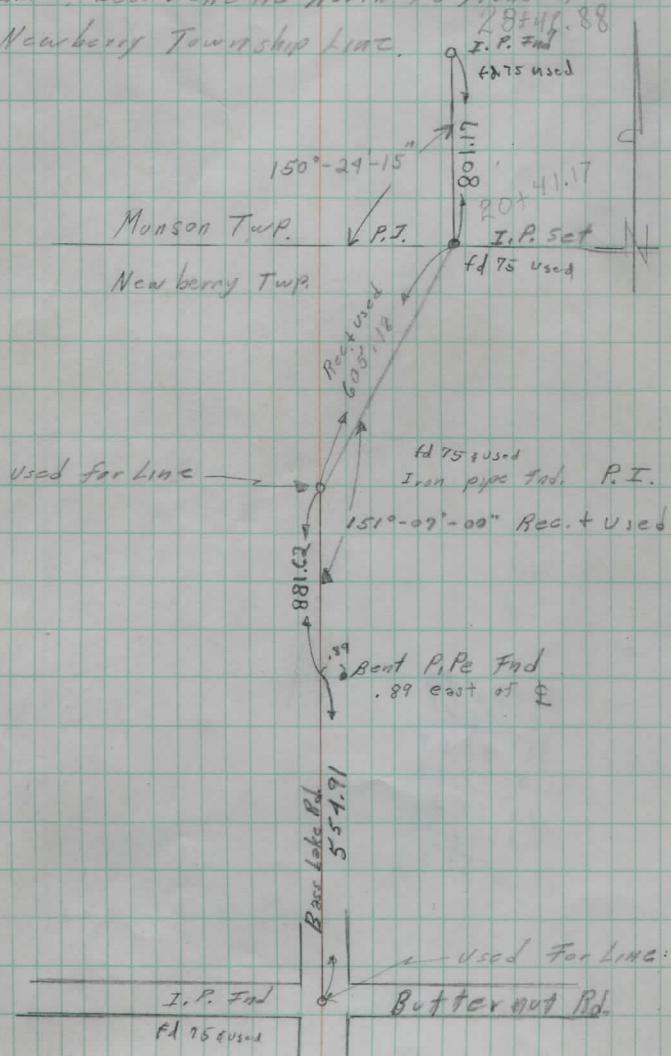 28+42.88
Newberry Township Line.
I.P. Fnd
fd 75 used
801.17
150°-24'-15"
20+41.17
Munson Twp.
P.I.
I.P. set
fd 75 used
Newberry Twp.
Rec. + used
605.18
fd 75 & used
Used for Line
Iron pipe Fnd. P.I.
151°-07'-00" Rec. + Used
881.62
.89
Bent Pipe Fnd
.89 east of ℄
Bass Lake Rd.
554.91
Used For Line:
I.P. Fnd
Butternut Rd.
fd 75 & used
N